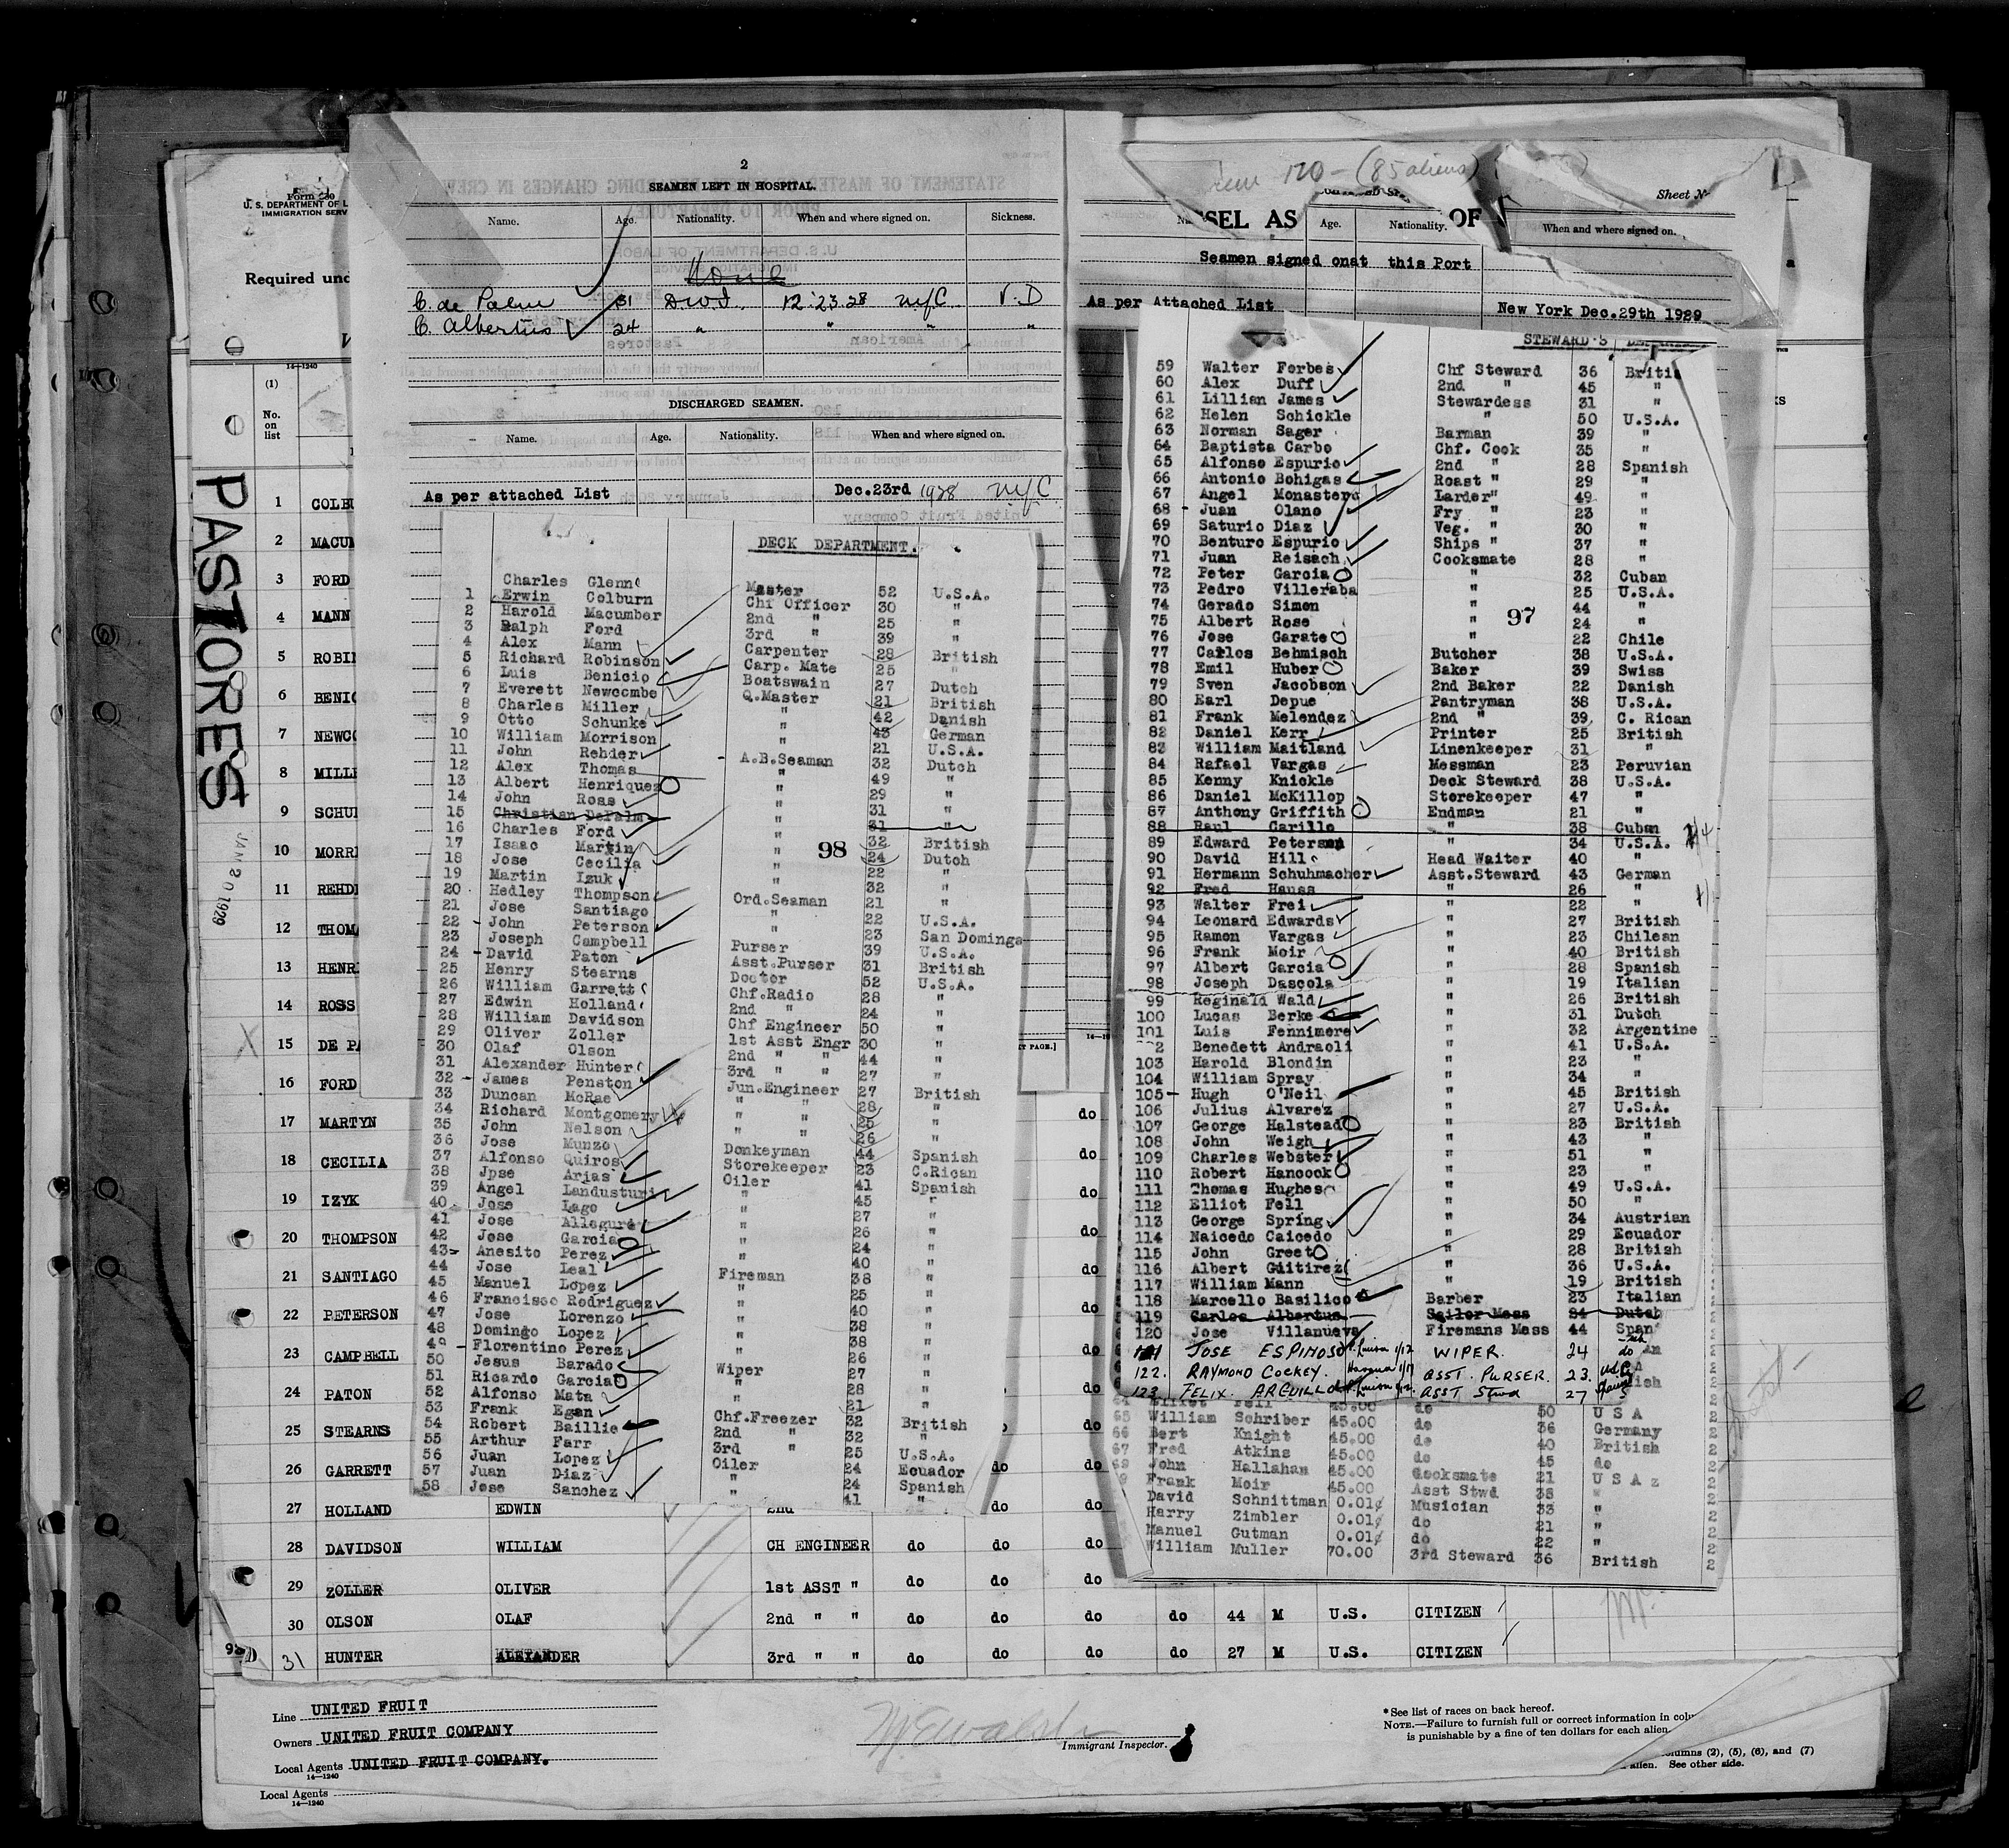 2
SEAMEN LEFT IN HOSPITAL.
Name. Age. Nationality. When and where signed on. Sickness.
None
C. de Palm 31 D.W.I. 12-23-28 N/C V.D
C. Albertus 24 " " " "
DISCHARGED SEAMEN.
Name. Age. Nationality. When and where signed on.
As per attached List Dec.23rd 1928 N/C
DECK DEPARTMENT.
Charles Glenn Master 52 U.S.A.
1 Erwin Colburn Chf Officer 30 "
2 Harold Macumber 2nd " 25 "
3 Ralph Ford 3rd " 39 "
4 Alex Mann Carpenter 28 British
5 Richard Robinson Carp. Mate 25 "
6 Luis Benicio Boatswain 27 Dutch
7 Everett Newcombe Q.Master 21 British
8 Charles Miller " 42 Danish
9 Otto Schunke " 43 German
10 William Morrison " 21 U.S.A.
11 John Rehder A.B.Seaman 32 Dutch
12 Alex Thomas " 49 "
13 Albert Henriquez " 29 "
14 John Ross " 31 "
15 Christian DePalm " 31 "
16 Charles Ford " 32 British
17 Isaac Martin " 24 Dutch
18 Jose Cecilia " 22 "
19 Martin Izuk " 32 "
20 Hedley Thompson Ord.Seaman 21 "
21 Jose Santiago " 22 U.S.A.
22 John Peterson " 23 San Domingo
23 Joseph Campbell Purser 39 U.S.A.
24 David Paton Asst.Purser 31 British
25 Henry Stearns Doctor 52 U.S.A.
26 William Garrett Chf.Radio 28 "
27 Edwin Holland 2nd " 24 "
28 William Davidson Chf Engineer 50 "
29 Oliver Zoller 1st Asst Engr 30 "
30 Olaf Olson 2nd " " 44 "
31 Alexander Hunter 3rd " " 27 "
32 James Penston Jun.Engineer 27 British
33 Duncan McRae " " 28 "
34 Richard Montgomery " " 25 "
35 John Nelson " " 26 "
36 Jose Munzo Donkeyman 44 Spanish
37 Alfonso Quiros Storekeeper 23 C.Rican
38 Jpse Arias Oiler 41 Spanish
39 Angel Landusturi " 45 "
40 Jose Lago " 27 "
41 Jose Allegure " 26 "
42 Jose Garcia " 24 "
43 Anesito Perez " 40 "
44 Jose Leal Fireman 38 "
45 Manuel Lopez " 25 "
46 Francisco Rodriguez " 40 "
47 Jose Lorenzo " 38 "
48 Domingo Lopez " 38 "
49 Florentino Perez " 26 "
50 Jesus Barado Wiper 27 "
51 Ricardo Garcia " 28 "
52 Alfonso Mata " 21 "
53 Frank Egan Chf.Freezer 32 British
54 Robert Baillie 2nd " 32 "
55 Arthur Farr 3rd " 25 U.S.A.
56 Juan Lopez Oiler 24 Ecuador
57 Juan Diaz " 24 Spanish
58 Jose Sanchez " 41 "
98
120 - (85 aliens)
Sheet
SSEL AS OF
Age. Nationality. When and where signed on.
Seamen signed onat this Port
As per Attached List New York Dec.29th 1929
STEWARD'S
59 Walter Forbes Chf Steward 36 Britis
60 Alex Duff 2nd " 45 "
61 Lillian James Stewardess 31 "
62 Helen Schickle " 50 U.S.A.
63 Norman Sager Barman 39 "
64 Baptista Carbo Chf. Cook 35 "
65 Alfonso Espurio 2nd " 28 Spanish
66 Antonio Bohigas Roast " 29 "
67 Angel Monastero Larder" 49 "
68 Juan Olano Fry " 23 "
69 Saturio Diaz Veg. " 30 "
70 Benturo Espurio Ships " 37 "
71 Juan Reisach Cooksmate 28 "
72 Peter Garcia " 32 Cuban
73 Pedro Villeraba " 25 U.S.A.
74 Gerado Simon " 44 "
75 Albert Rose " 24 "
76 Jose Garate " 22 Chile
77 Carlos Behmisch Butcher 38 U.S.A.
78 Emil Huber Baker 39 Swiss
79 Sven Jacobson 2nd Baker 22 Danish
80 Earl Depue Pantryman 38 U.S.A.
81 Frank Melendez 2nd " 39 C. Rican
82 Daniel Kerr Printer 25 British
83 William Maitland Linenkeeper 31 "
84 Rafael Vargas Messman 23 Peruvian
85 Kenny Knickle Deck Steward 38 U.S.A.
86 Daniel McKillop Storekeeper 47 "
87 Anthony Griffith Endman 21 "
88 Raul Carillo " 38 Cuban
89 Edward Peterson " 34 U.S.A.
90 David Hill Head Waiter 40 "
91 Hermann Schuhmacher Asst.Steward 43 German
92 Fred Hauss " 26 "
93 Walter Frei " 22 "
94 Leonard Edwards " 27 British
95 Ramon Vargas " 23 Chilean
96 Frank Moir " 40 British
97 Albert Garcia " 28 Spanish
98 Joseph Dascola " 19 Italian
99 Reginald Wald " 26 British
100 Lucas Berke " 31 Dutch
101 Luis Fennimere " 32 Argentine
2 Benedett Andraoli " 41 U.S.A.
103 Harold Blondin " 23 "
104 William Spray " 34 "
105 Hugh O'Neil " 45 British
106 Julius Alvarez " 27 U.S.A.
107 George Halstead " 23 British
108 John Weigh " 43 "
109 Charles Webster " 51 "
110 Robert Hancock " 23 "
111 Thomas Hughes " 49 U.S.A.
112 Elliot Fell " 50 "
113 George Spring " 34 Austrian
114 Naicedo Caicedo " 29 Ecuador
115 John Greet " 28 British
116 Albert Giitirez " 36 U.S.A.
117 William Mann " 19 British
118 Marcello Basilico Barber 23 Italian
119 Carlos Albertus Sailor Mess 24 Dutch
120 Jose Villanueva Firemans Mess 44 Span
121 JOSE ESPINOSO WIPER. 24 do
122. RAYMOND COCKEY. ASST. PURSER. 23.
123. FELIX. ARGUILLO ASST Stwd 27
97
Elliot Fell 45.00 do 50 U S A
65 William Schriber 45.00 do 36 Germany
66 Bert Knight 45.00 do 40 British
67 Fred Atkins 45.00 do 45 do
68 John Hallahan 45.00 Cooksmate 21 U S A
Frank Moir 45.00 Asst Stwd 38 "
David Schnittman 0.01¢ Musician 33 "
Harry Zimbler 0.01¢ do 21 "
Manuel Gutman 0.01¢ do 22 "
William Muller 70.00 3rd Steward 36 British
U. S. DEPARTMENT OF L
IMMIGRATION SERV
Required und
14—1240
(1)
No. on list
PASTORES
JAN 20 1929
1 COLBU
2 MACUM
3 FORD
4 MANN
5 ROBIN
6 BENIC
7 NEWCO
8 MILLE
9 SCHU
10 MORRI
11 REHD
12 THOMA
13 HENRI
14 ROSS
15 DE PA
16 FORD
17 MARTYN do
18 CECILIA do
19 IZYK do
20 THOMPSON do
21 SANTIAGO do
22 PETERSON do
23 CAMPBELL do
24 PATON do
25 STEARNS do
26 GARRETT do do
27 HOLLAND EDWIN 2nd do do
28 DAVIDSON WILLIAM CH ENGINEER do do do
29 ZOLLER OLIVER 1st ASST " do do do
30 OLSON OLAF 2nd " " do do do do 44 M U.S. CITIZEN
31 HUNTER ALEXANDER 3rd " " do do do do 27 M U.S. CITIZEN
Line UNITED FRUIT
Owners UNITED FRUIT COMPANY
Local Agents UNITED FRUIT COMPANY.
14—1240
Local Agents
14—1240
Immigrant Inspector.
*See list of races on back hereof.
NOTE.—Failure to furnish full or correct information in colu
is punishable by a fine of ten dollars for each alien
olumns (2), (5), (6), and (7)
alien. See other side.